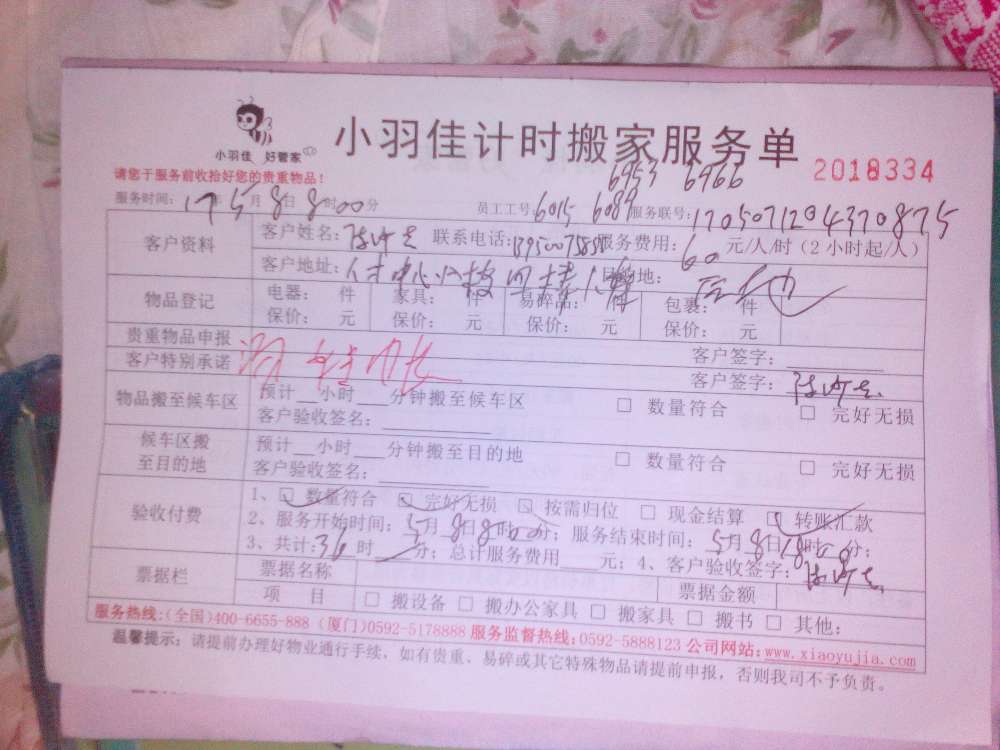 小羽佳 好管家
小羽佳计时搬家服务单
2018334
请您于服务前收拾好您的贵重物品!
6953 6966
服务时间: 17年5月8日8时00分 员工工号: 6015 6087 服务联号: 1705071204370875
客户资料 客户姓名: 联系电话: 服务费用: 60 元/人/时(2小时起/人)
客户地址: 目的地:
物品登记 电器: 件 家具: 件 易碎品: 件 包裹: 件
保价: 元 保价: 元 保价: 元 保价: 元
贵重物品申报 客户签字:
客户特别承诺 客户签字:
物品搬至候车区 预计__小时___分钟搬至候车区 □ 数量符合 □ 完好无损
客户验收签名:
候车区搬至目的地 预计__小时___分钟搬至目的地 □ 数量符合 □ 完好无损
客户验收签名:
验收付费 1、☑ 数量符合 ☑ 完好无损 □ 按需归位 □ 现金结算 ☑ 转账汇款
2、服务开始时间: 5月8日8时00分; 服务结束时间: 5月8日18时00分;
3、共计: 36时 分; 总计服务费用 元; 4、客户验收签字:
票据栏 票据名称 票据金额
项 目 □ 搬设备 □ 搬办公家具 □ 搬家具 □ 搬书 □ 其他:
服务热线:(全国)400-6655-888 (厦门)0592-5178888 服务监督热线:0592-5888123 公司网站:www.xiaoyujia.com
温馨提示: 请提前办理好物业通行手续, 如有贵重、易碎或其它特殊物品请提前申报, 否则我司不予负责。